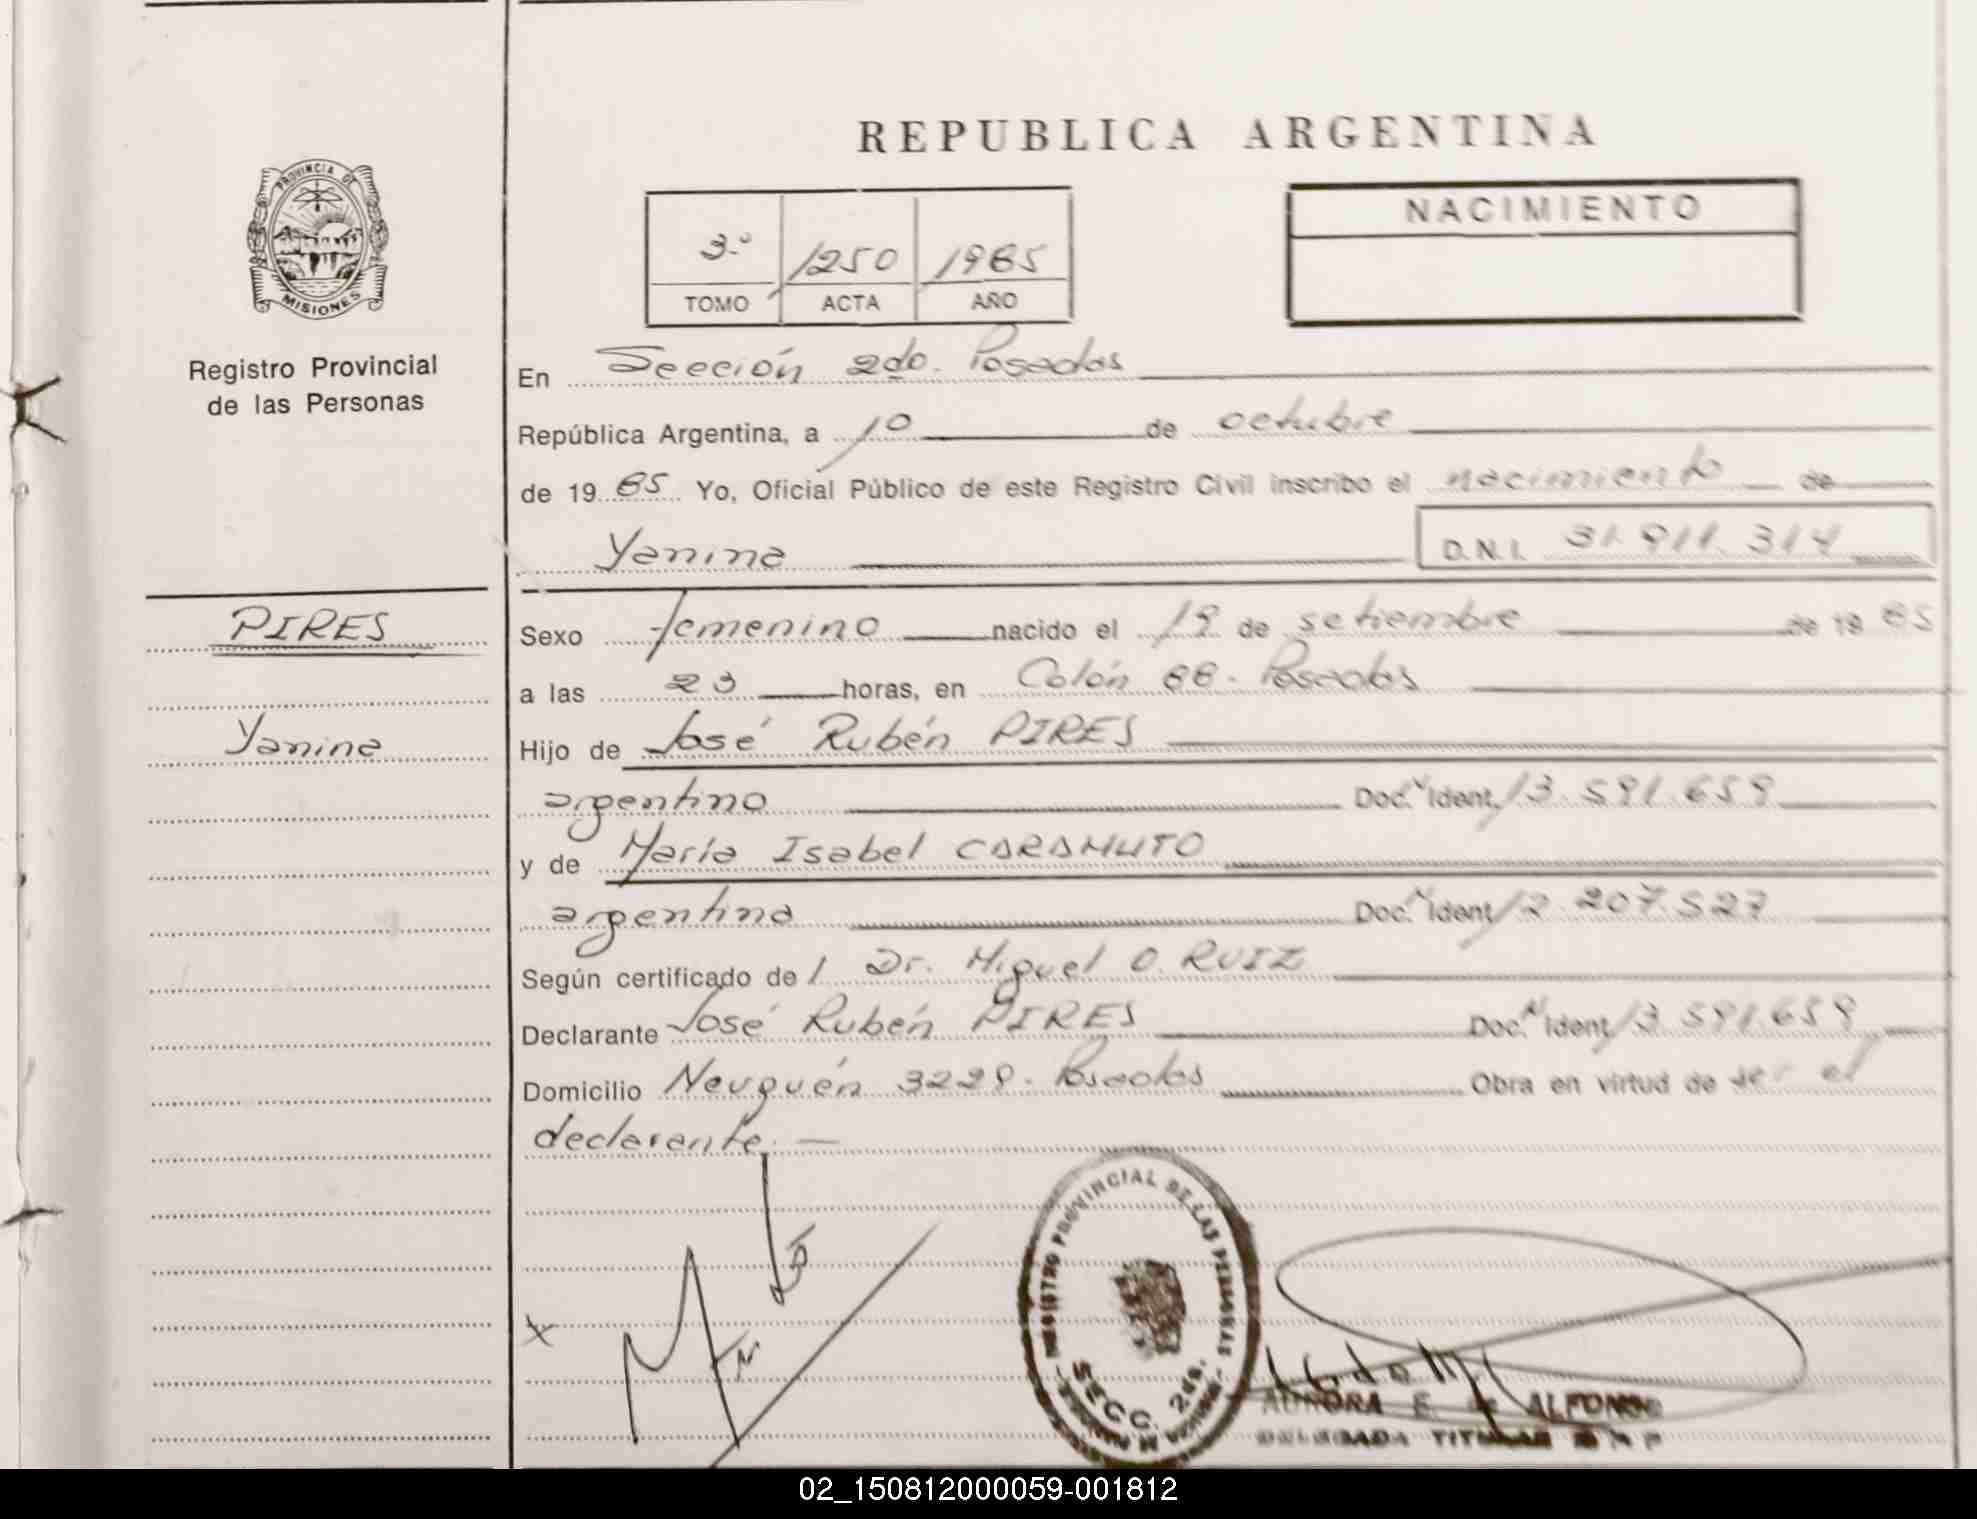 REPUBLICA ARGENTINA
PROVINCIA DE
MISIONES
Registro Provincial
de las Personas
3º 1250 1985
TOMO ACTA AÑO
NACIMIENTO
En Sección 2da. Posadas
República Argentina, a 10 de octubre
de 1985 Yo, Oficial Público de este Registro Civil inscribo el nacimiento de
Yanina D.N.I. 31.911.314
PIRES
Yanina
Sexo femenino nacido el 19 de setiembre de 1985
a las 23 horas, en Colón 88. Posadas
Hijo de José Rubén PIRES
argentino Doc. N Ident. 13.591.659
y de María Isabel CARAMUTO
argentina Doc. N Ident 12.207.527
Según certificado de l Dr. Miguel O. RUIZ
Declarante José Rubén PIRES Doc. N Ident 13.591.659
Domicilio Neuquén 3229. Posadas Obra en virtud de ser el
declarante. —
X
REGISTRO PROVINCIAL DE LAS PERSONAS
SECC. 2da.
AURORA E. de ALFONSO
DELEGADA TITULAR
02_150812000059-001812